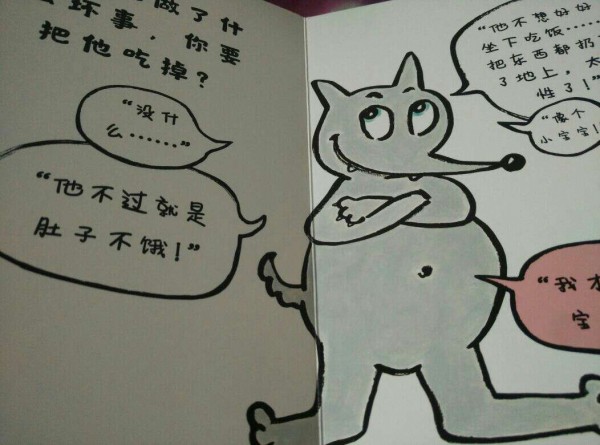 做了什
坏事，你要
把他吃掉？
“没什
么……”
“他不过就是
肚子不饿！”
“他不想好好
坐下吃饭……
把东西都扔
了地上，太
性了！”
“像个
小宝宝！
“我才
宝